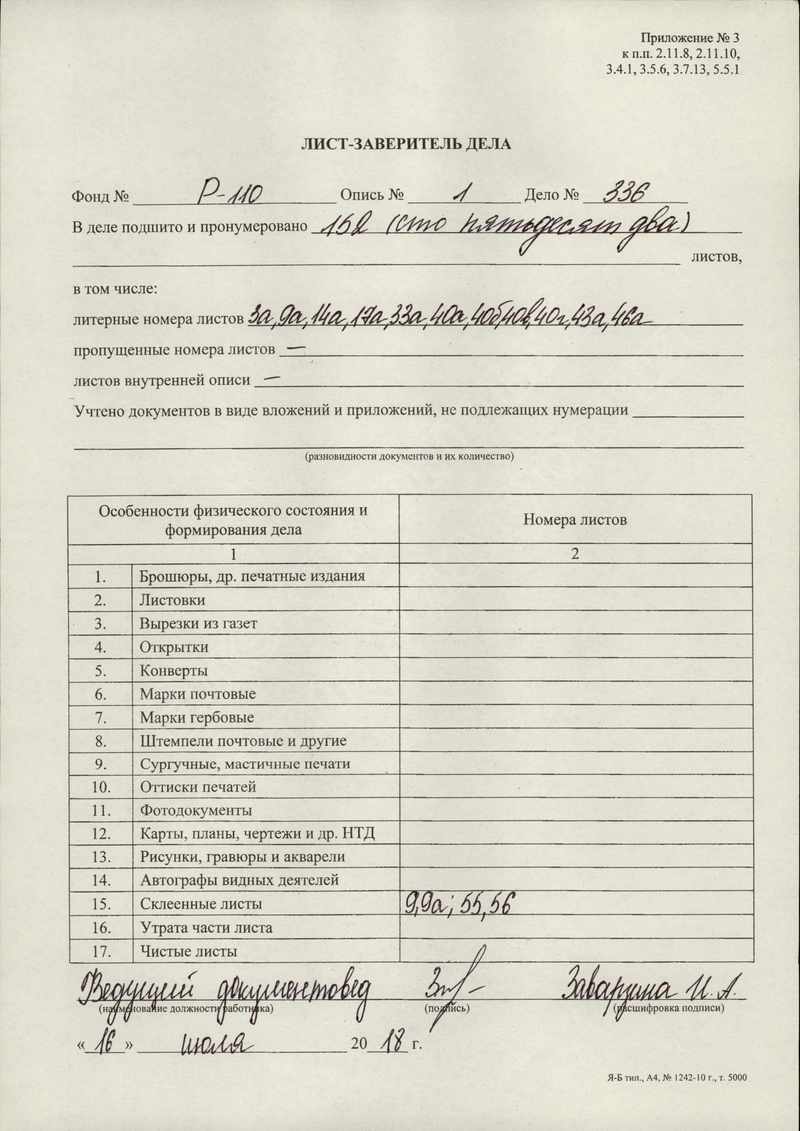 Приложение № 3
к п.п. 2.11.8, 2.11.10,
3.4.1, 3.5.6, 3.7.13, 5.5.1
ЛИСТ-ЗАВЕРИТЕЛЬ ДЕЛА
Фонд № Р-110 Опись № 1 Дело № 336
В деле подшито и пронумеровано 152 (сто пятьдесят два)
листов,
в том числе:
литерные номера листов 3а, 9а, 14а, 17а, 33а, 40а, 40б, 40в, 40г, 43а, 46а
пропущенные номера листов —
листов внутренней описи —
Учтено документов в виде вложений и приложений, не подлежащих нумерации
(разновидности документов и их количество)
Особенности физического состояния и формирования дела Номера листов
1 2
1. Брошюры, др. печатные издания
2. Листовки
3. Вырезки из газет
4. Открытки
5. Конверты
6. Марки почтовые
7. Марки гербовые
8. Штемпели почтовые и другие
9. Сургучные, мастичные печати
10. Оттиски печатей
11. Фотодокументы
12. Карты, планы, чертежи и др. НТД
13. Рисунки, гравюры и акварели
14. Автографы видных деятелей
15. Склеенные листы 9,9а; 55,56
16. Утрата части листа
17. Чистые листы
Ведущий документовед Заварзина И. А.
(наименование должности работника) (подпись) (расшифровка подписи)
« 16 » июля 20 18 г.
Я-Б тип., А4, № 1242-10 г., т. 5000